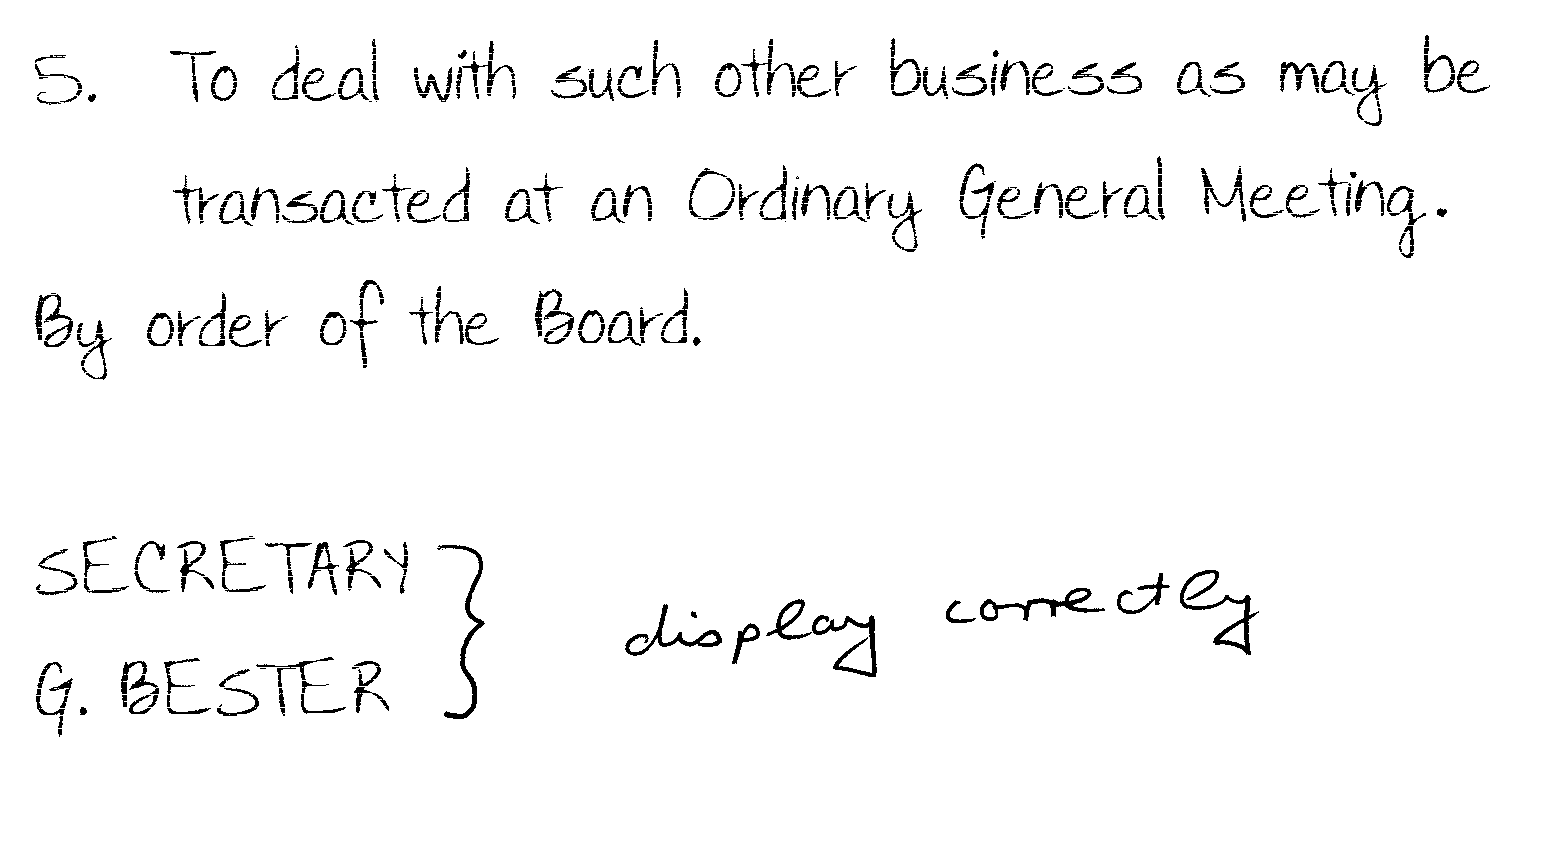 5. To deal with such other business as may be
transacted at an Ordinary General Meeting.
By order of the Board.
SECRETARY
G. BESTER
display correctly